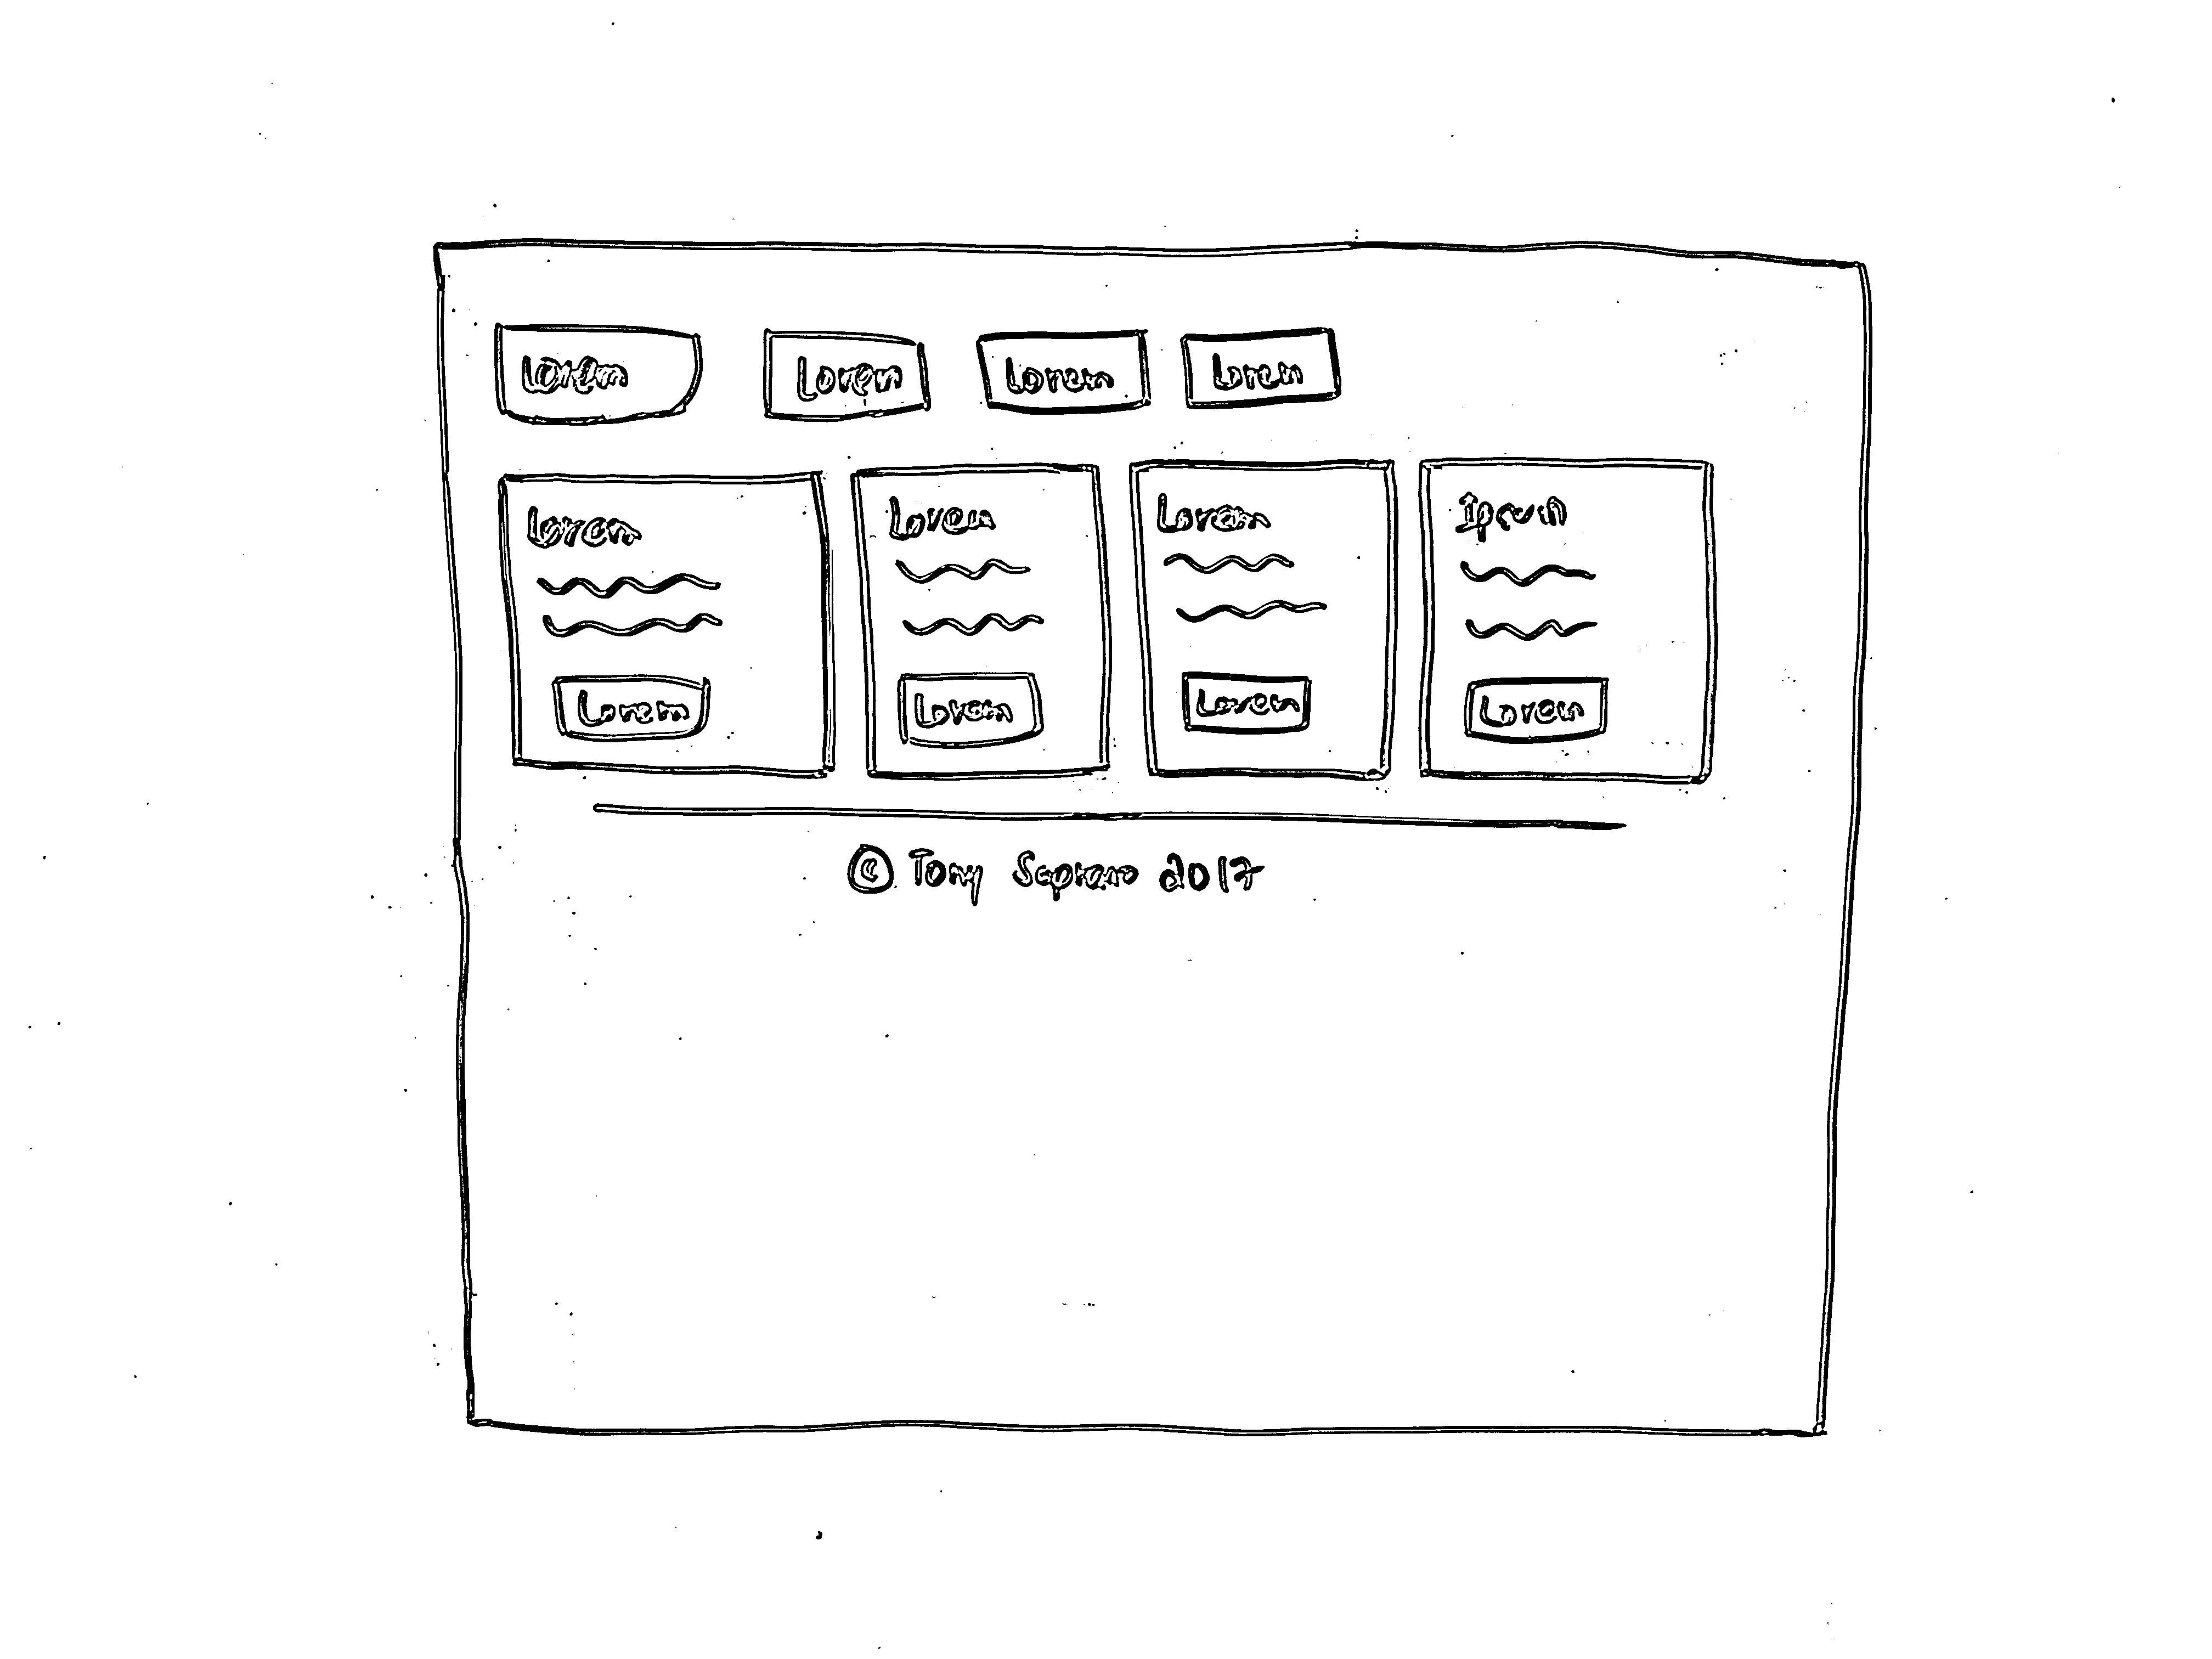 Lorem Lorem Lorem Loren
Lorem Lorem Lorem Ipsum
Lorem Lorem Lorem Lorem
© Tony Soprano 2017